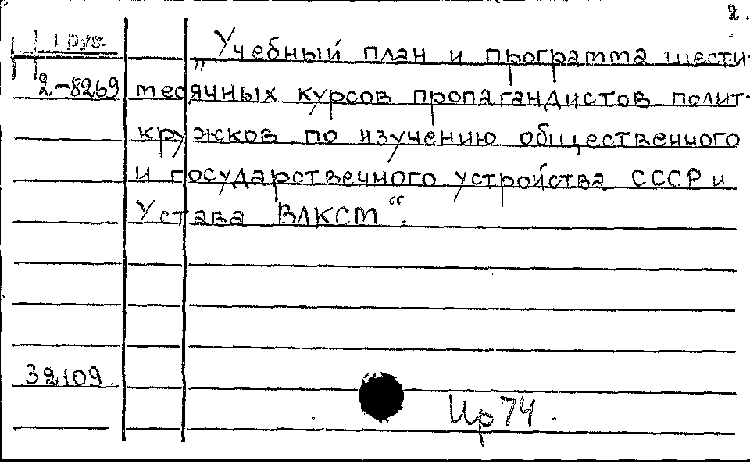 2.
„Учебный план и программа шести-
2-8269 месячных курсов пропагандистов полит-
кружков по изучению общественного
и государственного устройства СССР и
Устава ВЛКСМ“.
32109
Ир 74.